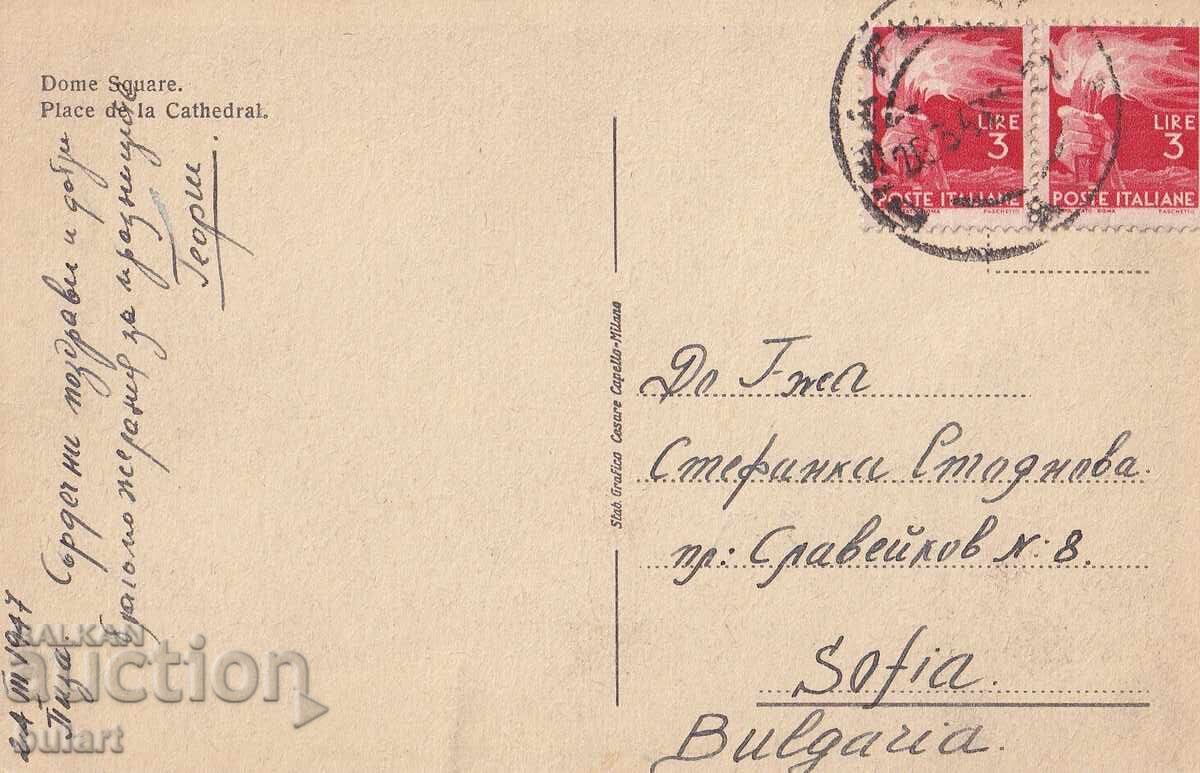 Dome Square.
Place de la Cathedral.
24 III 1947
Пиза.
Сърдечни поздрави и добри
благопожелания за празниците
Георги
Stab. Grafico Cesare Capello-Milano
LIRE
3
POSTE ITALIANE
PASCHETTO
LIRE
3
POSTE ITALIANE
ROMA PASCHETTO
До Г-жеа
Стефанка Стоянова.
пр: Славейков №: 8.
Sofia.
Bulgaria.
BALKAN
auction
bulart